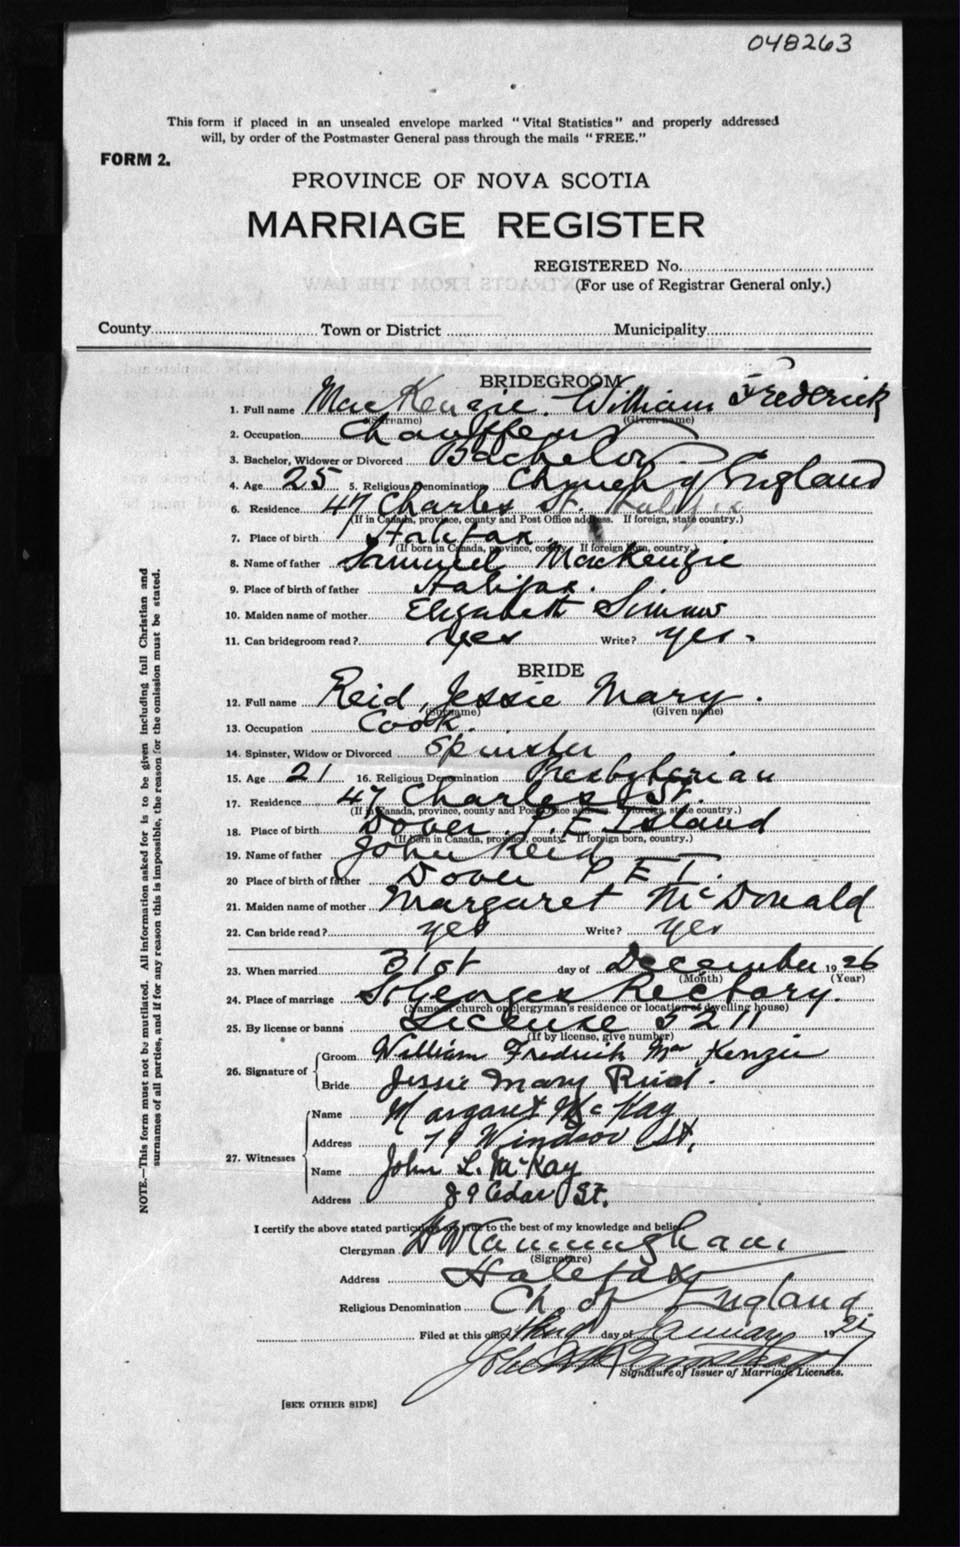 048263
This form if placed in an unsealed envelope marked "Vital Statistics" and properly addressed
will, by order of the Postmaster General pass through the mails "FREE."
FORM 2.
PROVINCE OF NOVA SCOTIA
MARRIAGE REGISTER
REGISTERED No.
(For use of Registrar General only.)
County Town or District Municipality
BRIDEGROOM
1. Full name MacKenzie. William Frederick
(Surname) (Given name)
2. Occupation Chauffeur
3. Bachelor, Widower or Divorced Bachelor
4. Age 25 5. Religious Denomination Church of England
6. Residence 47 Charles St. Halifax
(If in Canada, province, county and Post Office address. If foreign, state country.)
7. Place of birth Halifax.
(If born in Canada, province, county. If foreign born, country.)
8. Name of father Samuel MacKenzie
9. Place of birth of father Halifax.
10. Maiden name of mother Elizabeth
11. Can bridegroom read? yes Write? yes.
BRIDE
12. Full name Reid, Jessie Mary.
(Surname) (Given name)
13. Occupation Cook.
14. Spinster, Widow or Divorced Spinster
15. Age 21 16. Religious Denomination Presbyterian
17. Residence 47 Charles St.
(If in Canada, province, county and Post Office address. If foreign, state country.)
18. Place of birth Dover. P. E Island
(If born in Canada, province, county. If foreign born, country.)
19. Name of father John Reid
20 Place of birth of father Dover P E I.
21. Maiden name of mother Margaret McDonald
22. Can bride read? yes Write? yes
23. When married 31st day of December 1926
(Month) (Year)
24. Place of marriage St Georges Rectory.
(Name of church or clergyman's residence or location of dwelling house)
25. By license or banns License 5211
(If by license, give number)
26. Signature of Groom William Fredrick MacKenzie
Bride Jessie Mary Reid.
27. Witnesses Name Margaret McKay
Address 79 Windsor St,
Name John L. McKay
Address Cedar St.
I certify the above stated particulars are true to the best of my knowledge and belief.
Clergyman H W Cunningham
(Signature)
Address Halifax
Religious Denomination Ch of England
Filed at this office day of January 1927
Signature of Issuer of Marriage Licenses.
[SEE OTHER SIDE]
NOTE.—This form must not be mutilated. All information asked for is to be given including full Christian and
surnames of all parties, and if for any reason this is impossible, the reason for the omission must be stated.